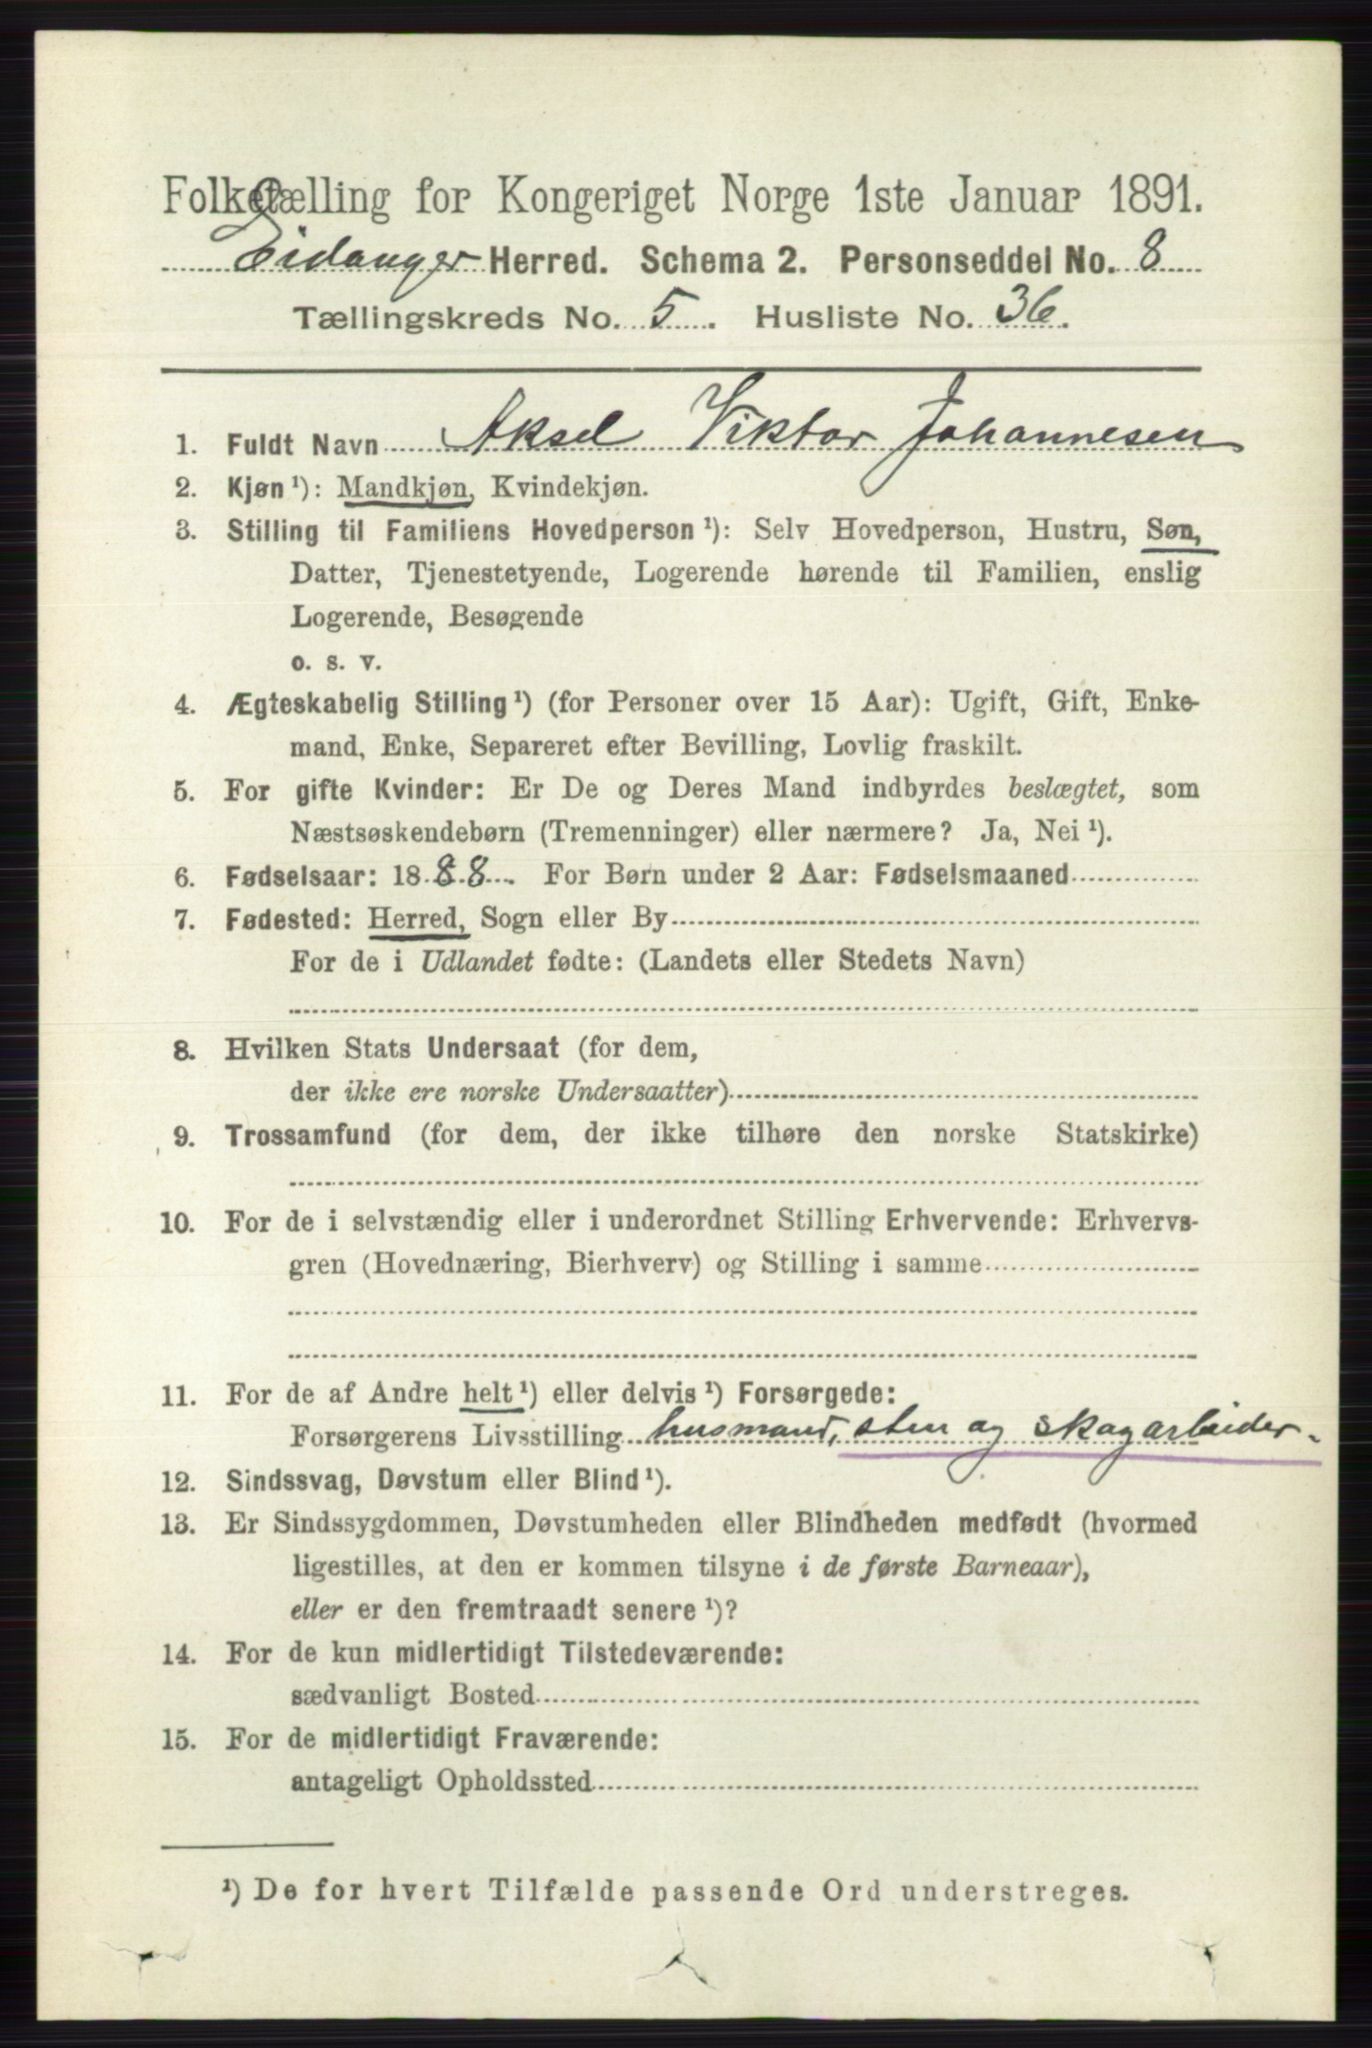 Folketælling for Kongeriget Norge 1ste Januar 1891.
Eidanger Herred. Schema 2. Personseddel No. 8
Tællingskreds No. 5. Husliste No. 36.
1. Fuldt Navn Aksel Viktor Johannesen
2. Kjøn ¹): Mandkjøn, Kvindekjøn.
3. Stilling til Familiens Hovedperson ¹): Selv Hovedperson, Hustru, Søn,
Datter, Tjenestetyende, Logerende hørende til Familien, enslig
Logerende, Besøgende
o. s. v.
4. Ægteskabelig Stilling ¹) (for Personer over 15 Aar): Ugift, Gift, Enke-
mand, Enke, Separeret efter Bevilling, Lovlig fraskilt.
5. For gifte Kvinder: Er De og Deres Mand indbyrdes beslægtet, som
Næstsøskendebørn (Tremenninger) eller nærmere? Ja, Nei ¹).
6. Fødselsaar: 1888. For Børn under 2 Aar: Fødselsmaaned
7. Fødested: Herred, Sogn eller By
For de i Udlandet fødte: (Landets eller Stedets Navn)
8. Hvilken Stats Undersaat (for dem,
der ikke ere norske Undersaatter)
9. Trossamfund (for dem, der ikke tilhøre den norske Statskirke)
10. For de i selvstændig eller i underordnet Stilling Erhvervende: Erhvervs-
gren (Hovednæring, Bierhverv) og Stilling i samme
11. For de af Andre helt ¹) eller delvis ¹) Forsørgede:
Forsørgerens Livsstilling husmand, sten og skogarbeider.
12. Sindssvag, Døvstum eller Blind ¹).
13. Er Sindssygdommen, Døvstumheden eller Blindheden medfødt (hvormed
ligestilles, at den er kommen tilsyne i de første Barneaar),
eller er den fremtraadt senere ¹)?
14. For de kun midlertidigt Tilstedeværende:
sædvanligt Bosted
15. For de midlertidigt Fraværende:
antageligt Opholdssted
¹) De for hvert Tilfælde passende Ord understreges.